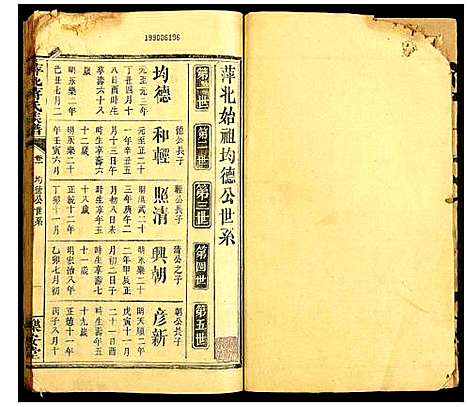 199006196
萍北始祖均德公世系
第一世
第二世
第三世
第四世
第五世
均德
元至元三年
丁丑四月初
八日酉時生
享壽六十八
歲
明永樂二年
己丑七月二
和輕
德公長子
元至正二十
一年辛丑五
月十三日午
時生享壽五
十二歲
明永樂二十
年壬寅六月
照清
輕公長子
明洪武二十
三年庚午二
月初二日子
時生享壽七
十八歲
正統十二年
丁卯十一月
興朝
清公之子
明永樂二十
二年甲辰正
月初二日亥
時生享壽七
十二歲
明弘治八年
乙卯七月初
彥新
朝公長子
明天順二年
戊寅十一月
二十一日酉
時生享壽五
十九歲
正德十一年
丙子八月十
均德公世系
樂安堂